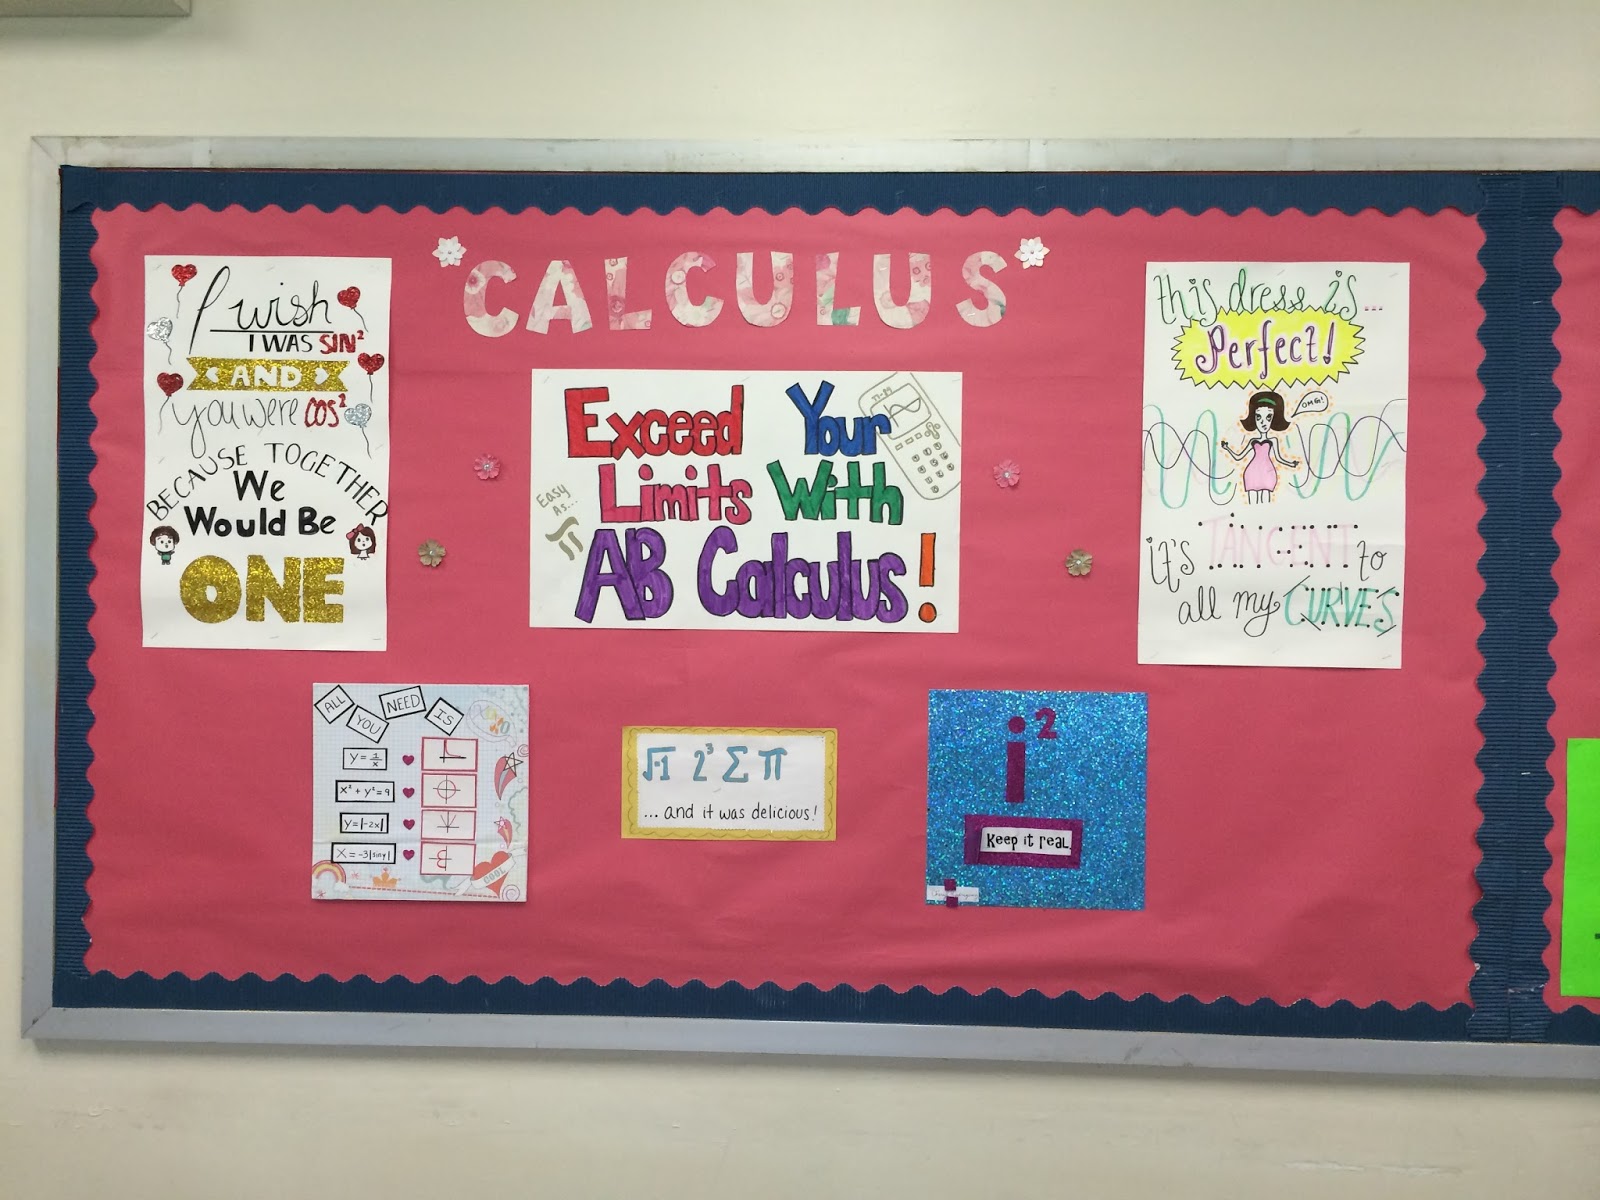 CALCULUS
I wish
I WAS SIN²
AND
you were COS²
BECAUSE TOGETHER
We
Would Be
ONE
Exceed Your
Limits With
AB Calculus!
TI-89
Easy
As...
π
this dress is...
Perfect!
OMG!
it's TANGENT to
all my CURVES
ALL YOU NEED IS
XOXO
Y = 1/x
X² + Y² = 9
Y = |-2x|
X = -3|siny|
COOL
√-1 2³ Σ π
... and it was delicious!
i²
Keep it real.